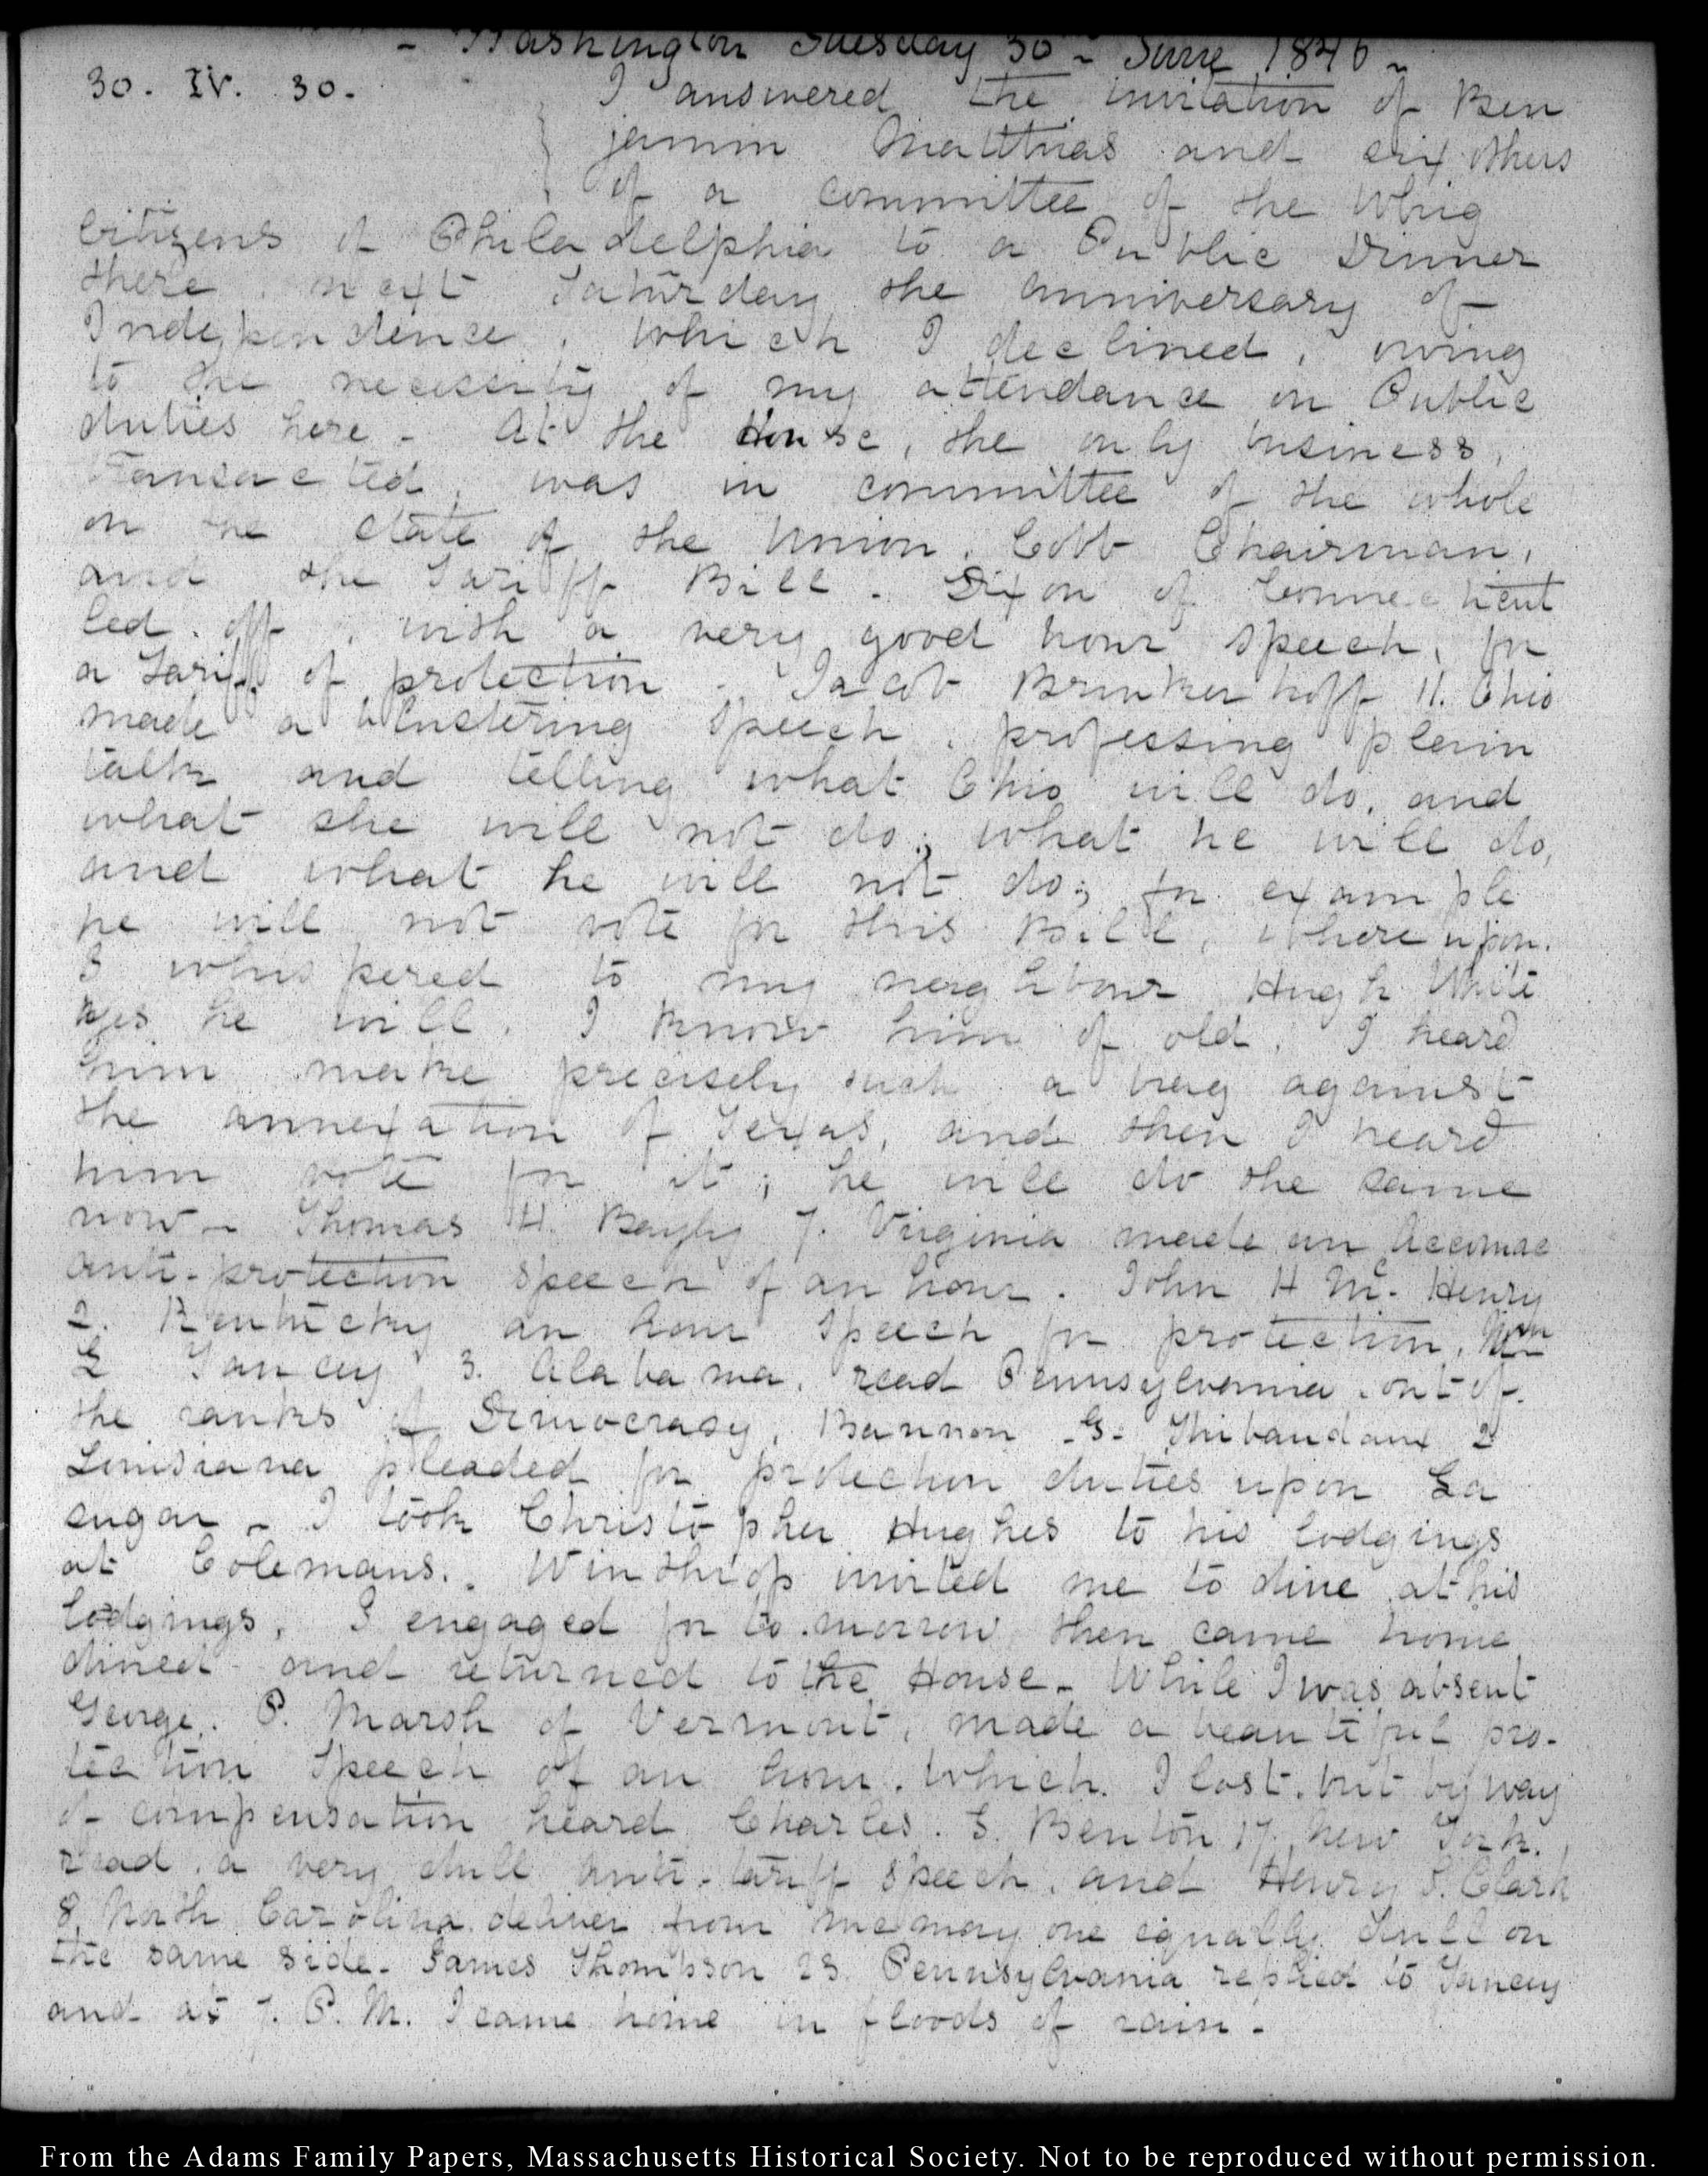 - Washington Tuesday 30 - June 1846 -
30. IV. 30.
I answered the invitation of Ben
jamin Matthias and six others
of a committee of the Whig
Citizens of Philadelphia to a Public Dinner
there, next Saturday the anniversary of
Independence, which I declined, owing
to the necessity of my attendance on Public
duties here - At the House, the only business,
transacted, was in committee of the whole
on the state of the Union, Cobb Chairman,
and the Tariff Bill. Dixon of Connecticut
led off, with a very good hour speech, for
a Tariff of protection - Jacob Brinkerhoff 11. Ohio
made a blustering speech, professing plain
talk and telling what Ohio will do, and
what she will not do; what he will do,
and what he will not do; for example
he will not vote for this Bill, whereupon
I whispered to my neighbour Hugh White
yes he will. I know him of old. I heard
him make precisely such a brag against
the annexation of Texas, and then I heard
him vote for it; he will do the same
now - Thomas H. Bayly 7. Virginia made an Accomac
anti-protection speech of an hour. John H Mc. Henry
2. Kentucky an hour speech for protection, Wm
L Yancey 3. Alabama, read Pennsylvania out of
the ranks of Democracy, Bannon G. Thibaudaux 2
Louisiana pleaded for protection duties upon La
sugar - I took Christopher Hughes to his lodgings
at Colemans. Winthrop invited me to dine at his
lodgings, I engaged for to.morrow, then came home
dined and returned to the House - While I was absent
George. P. Marsh of Vermont, made a beautiful pro-
tection speech of an hour, which I lost, but by way
of compensation heard Charles. S. Benton 17. New York.
read a very dull anti-tariff speech, and Henry S. Clark
8. North Carolina deliver from memory one equally dull on
the same side - James Thompson 23 Pennsylvania replied to Yancey
and at 7. P.M. I came home in floods of rain -
From the Adams Family Papers, Massachusetts Historical Society. Not to be reproduced without permission.